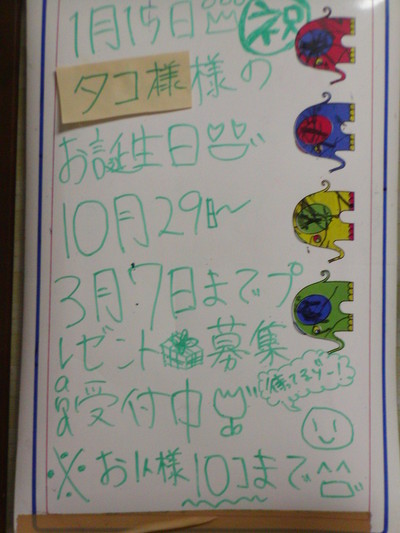 1月15日 祝
タコ様様の
お誕生日
10月29日〜
3月7日までプ
レゼント募集
and受付中
待ってるゾー!
※お1人様10コまで